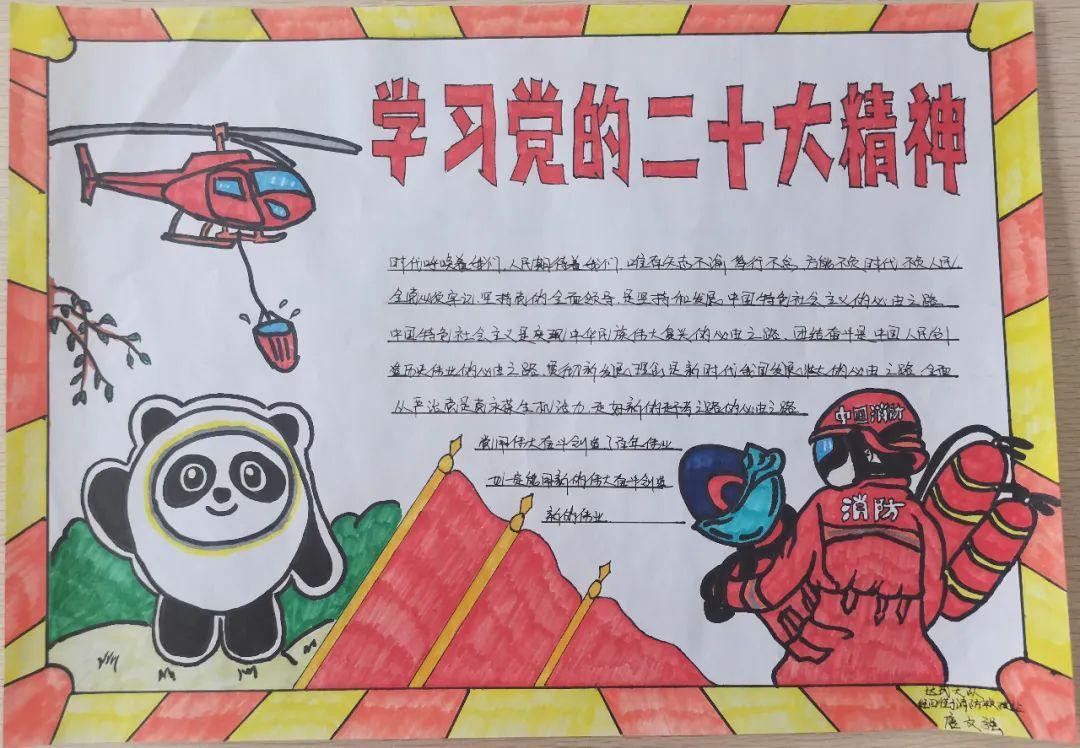 学习党的二十大精神
时代呼唤着我们,人民期待着我们,唯有矢志不渝、笃行不怠,方能不负时代、不负人民
全党必须牢记,坚持党的全面领导是坚持和发展中国特色社会主义的必由之路
中国特色社会主义是实现中华民族伟大复兴的必由之路,团结奋斗是中国人民创
造历史伟业的必由之路,贯彻新发展理念是新时代我国发展壮大的必由之路,全面
从严治党是党永葆生机活力、走好新的赶考之路的必由之路
党用伟大奋斗创造了百年伟业
也一定能用新的伟大奋斗创造
新的伟业
中国消防
消防
大队
消防救援站
唐文强